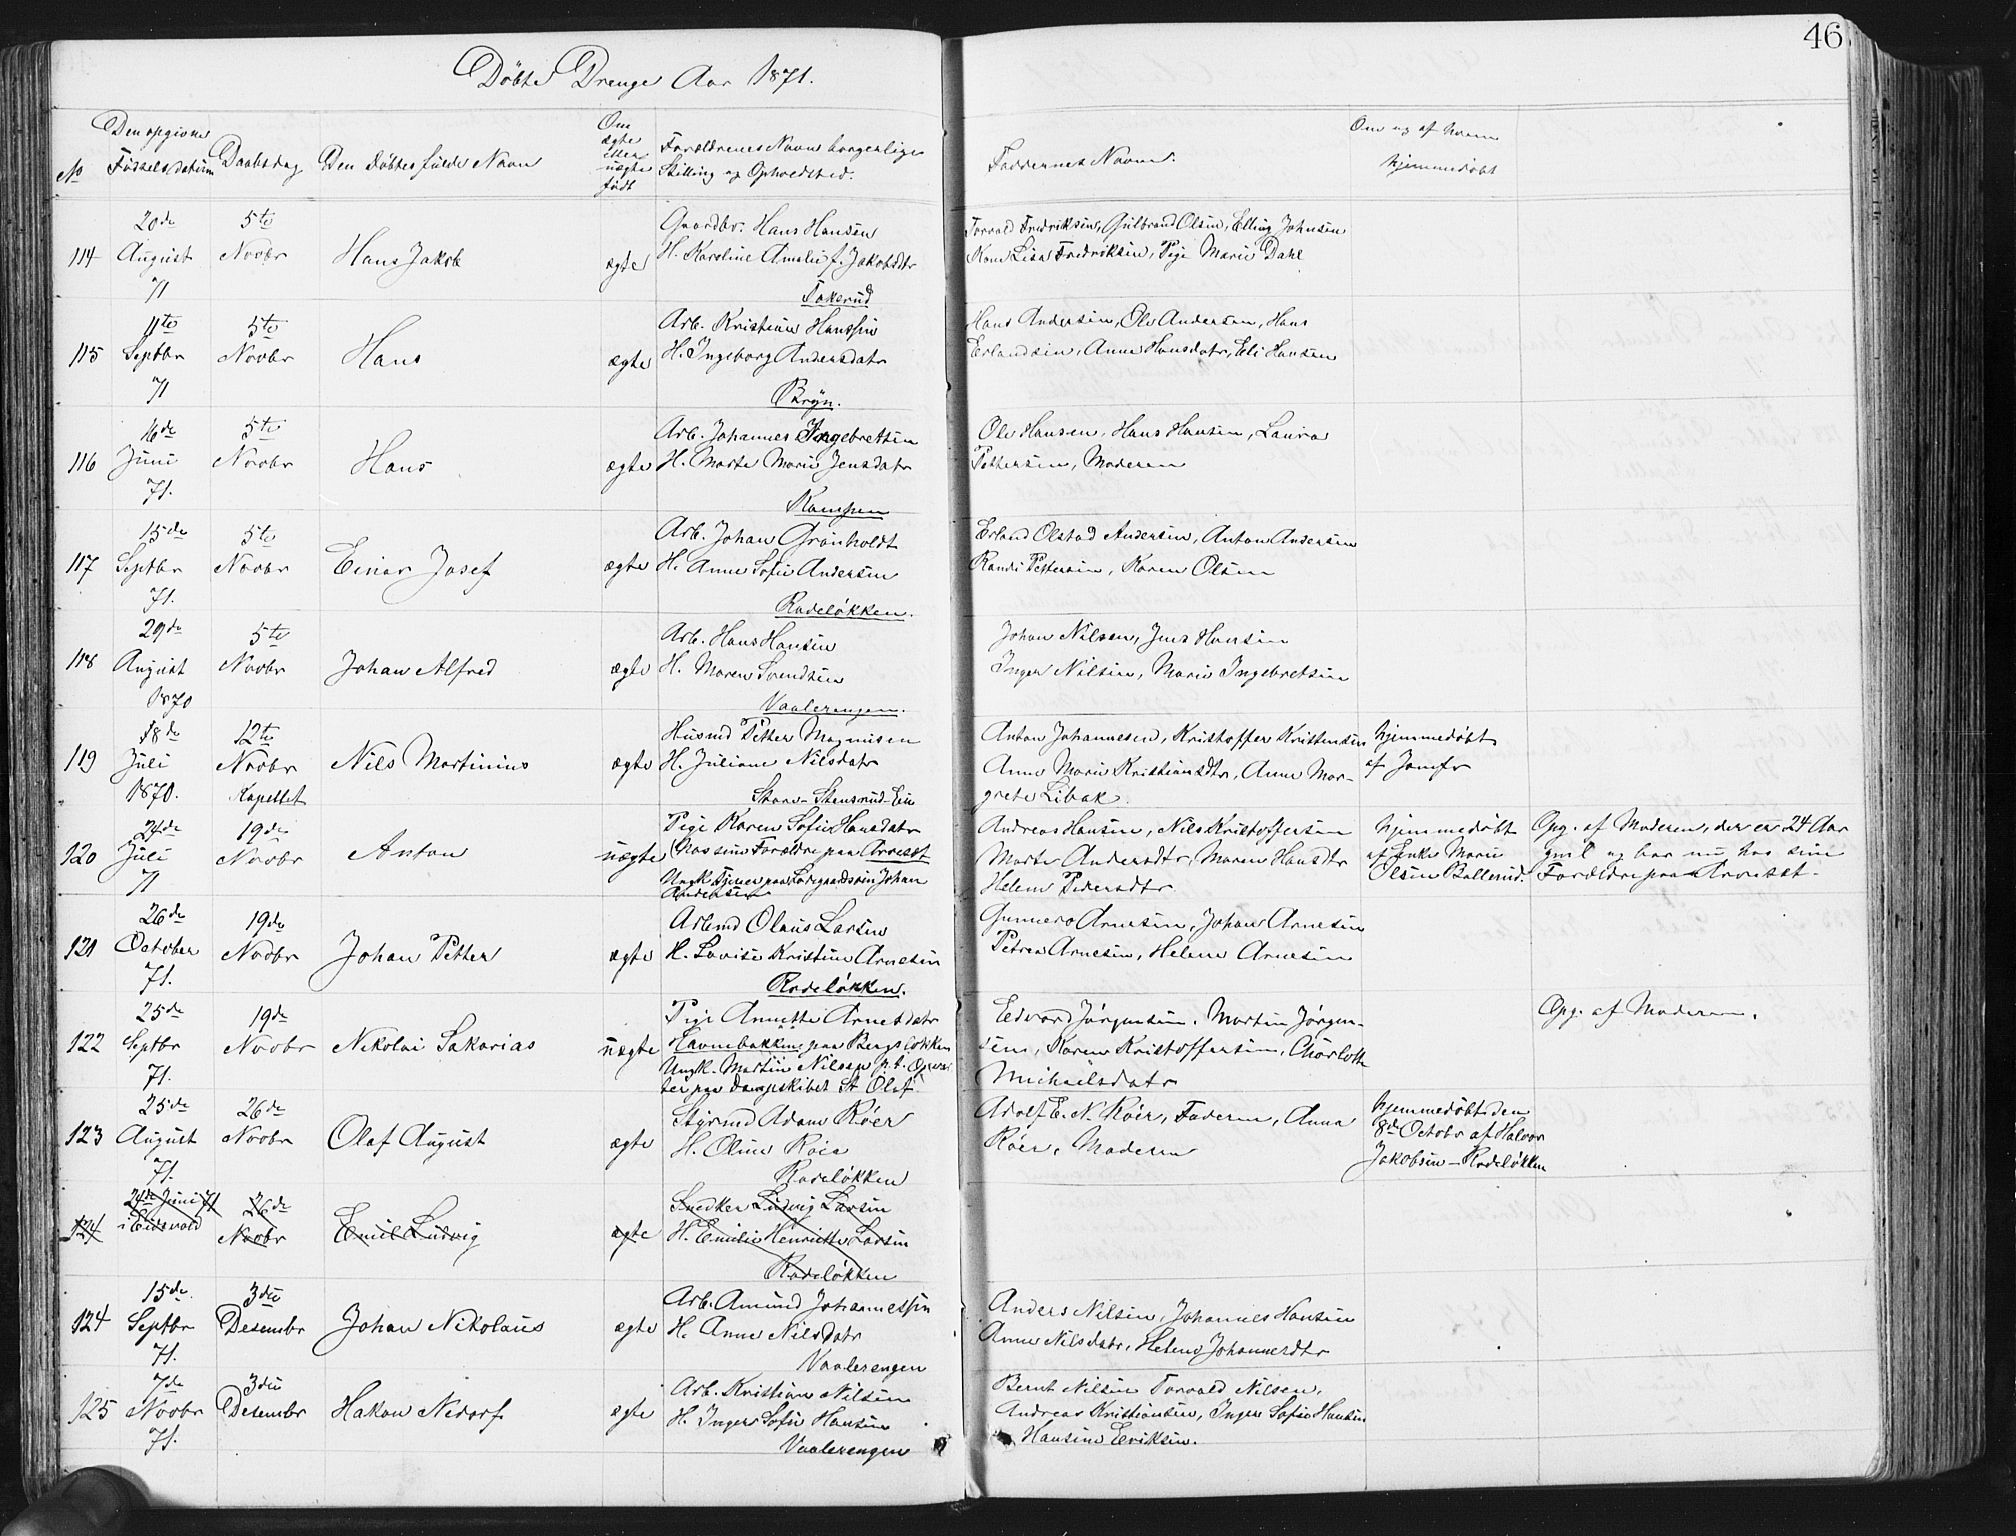 46
Døbte Drenge Aar 1871.
No
Den opgivne
Fødselsdatum
Daabsdag
Den Døbtes fulde Navn
Om
ægte
eller
uægte
født
Forældrenes Navn borgerlige
Stilling og Opholdsted.
Faddernes Navne.
Om og af hvem
hjemmedøbt
114
20de
August
71
5te
Novbr
Hans Jakob
ægte
Gaardbr. Hans Hansen
H. Karoline Amalie f. Jakobsdtr
Tokerud
Torvald Fredriksen, Gulbrand Olsen, Elling Johnsen
Kone Lisa Fredriksen, Pige Marie Dahl
115
11te
Septbr
71
5te
Novbr
Hans
ægte
Arb. Kristian Hanssen
H. Ingeborg Andersdatr
Bryn.
Hans Andersen, Ole Andersen, Hans
Erlandsen, Anne Hansdatr, Eli Hansen
116
16de
Juni
71.
5te
Novbr
Hans
ægte
Arb. Johannes Ingebretsen
H. Marte Marie Jensdatr
Kampen
Ole Hansen, Hans Hansen, Laura
Pettersen, Moderen
117
15de
Septbr
71.
5te
Novbr
Einar Josef
ægte
Arb. Johan Grönholdt
H. Anne Sofie Andersen
Rodeløkken.
Erland Olstad Andersen, Anton Andersen
Randi Pettersen, Karen Olsen
118
29de
August
1870
5te
Novbr
Johan Alfred
ægte
Arb. Hans Hansen
H. Maren Svendsen
Vaalerengen.
Johan Nilsen, Jens Hansen
Inger Nilsen, Marie Ingebretsen
119
18de
Juli
1870.
12te
Novbr
Kapellet
Nils Martinius
ægte
Husmd Petter Magnusen
H. Juliane Nilsdatr
Store-Stensrud-Eie
Anton Johannesen, Kristoffer Kristensen
Anne Marie Kristiansdtr, Anne Mar-
grete Libak.
hjemmedøbt
af Jomfr
120
24de
Juli
71
19de
Novbr
Anton
uægte
Pige Karen Sofie Hansdatr
(hos sine Forældre paa Arveset
Ungk. Tjener paa Ladegaardsøen Johan
Andersen
Andreas Hansen, Nils Kristoffersen
Marte Andersdtr, Maren Hansdtr
Helene Pedersdtr.
hjemmedøbt
af Enke Marie
Olsen Ballerud.
Opg. af Moderen, der er 24 Aar
gml og bor nu hos sine
Forældre paa Arveset.
121
26de
October
71.
19de
Novbr
Johan Petter
ægte
Arbmd Olaus Larsen
H. Lovise Kristine Arnesen
Rodeløkken.
Gunnero Arnesen, Johan Arnesen
Petrea Arnesen, Helene Arnesen
122
25de
Septbr
71.
19de
Novbr
Nikolai Sakarias
uægte
Pige Annette Arnesdatr
Havnebakken paa Bergsløkken
Ungk. Martin Nilssen p.t. Opvar
ter paa Dampskibet St Olaf.
Edvard Jørgensen, Martin Jørgen-
sen, Karen Kristoffersen, Charlotte
Michaelsdatr
Opg. af Moderen.
123
25de
August
71.
26de
Novbr
Olaf August
ægte
Styrmd Adam Röer
H. Oline Röer
Rodeløkken
Adolf E. N. Röer, Faderen, Anna
Röer, Moderen
hjemmedøbt den
8de Octobr af Halvor
Jakobsen - Rodeløkken
124
24de Juni 71
i Eidsvold
26de
Novbr
Emil Ludvig
ægte
Snedker Ludvig Larsen
H. Emilie Henriette Larsen
Rodeløkken
124
15de
Septbr
71.
3die
Desembr
Johan Nikolaus
ægte
Arb. Amund Johannessen
H. Anne Nilsdatr
Vaalerengen
Anders Nilsen, Johannes Hansen
Anne Nilsdatr, Helene Johannesdtr
125
7de
Novbr
71.
3die
Desembr
Hakon Nedorf
ægte
Arb. Kristian Nilsen
H. Inger Sofie Hansen
Vaalerengen
Bernt Nilsen Torvald Nilsen,
Andreas Kristiansen, Inger Sofie Hansen
Hansine Eriksen.